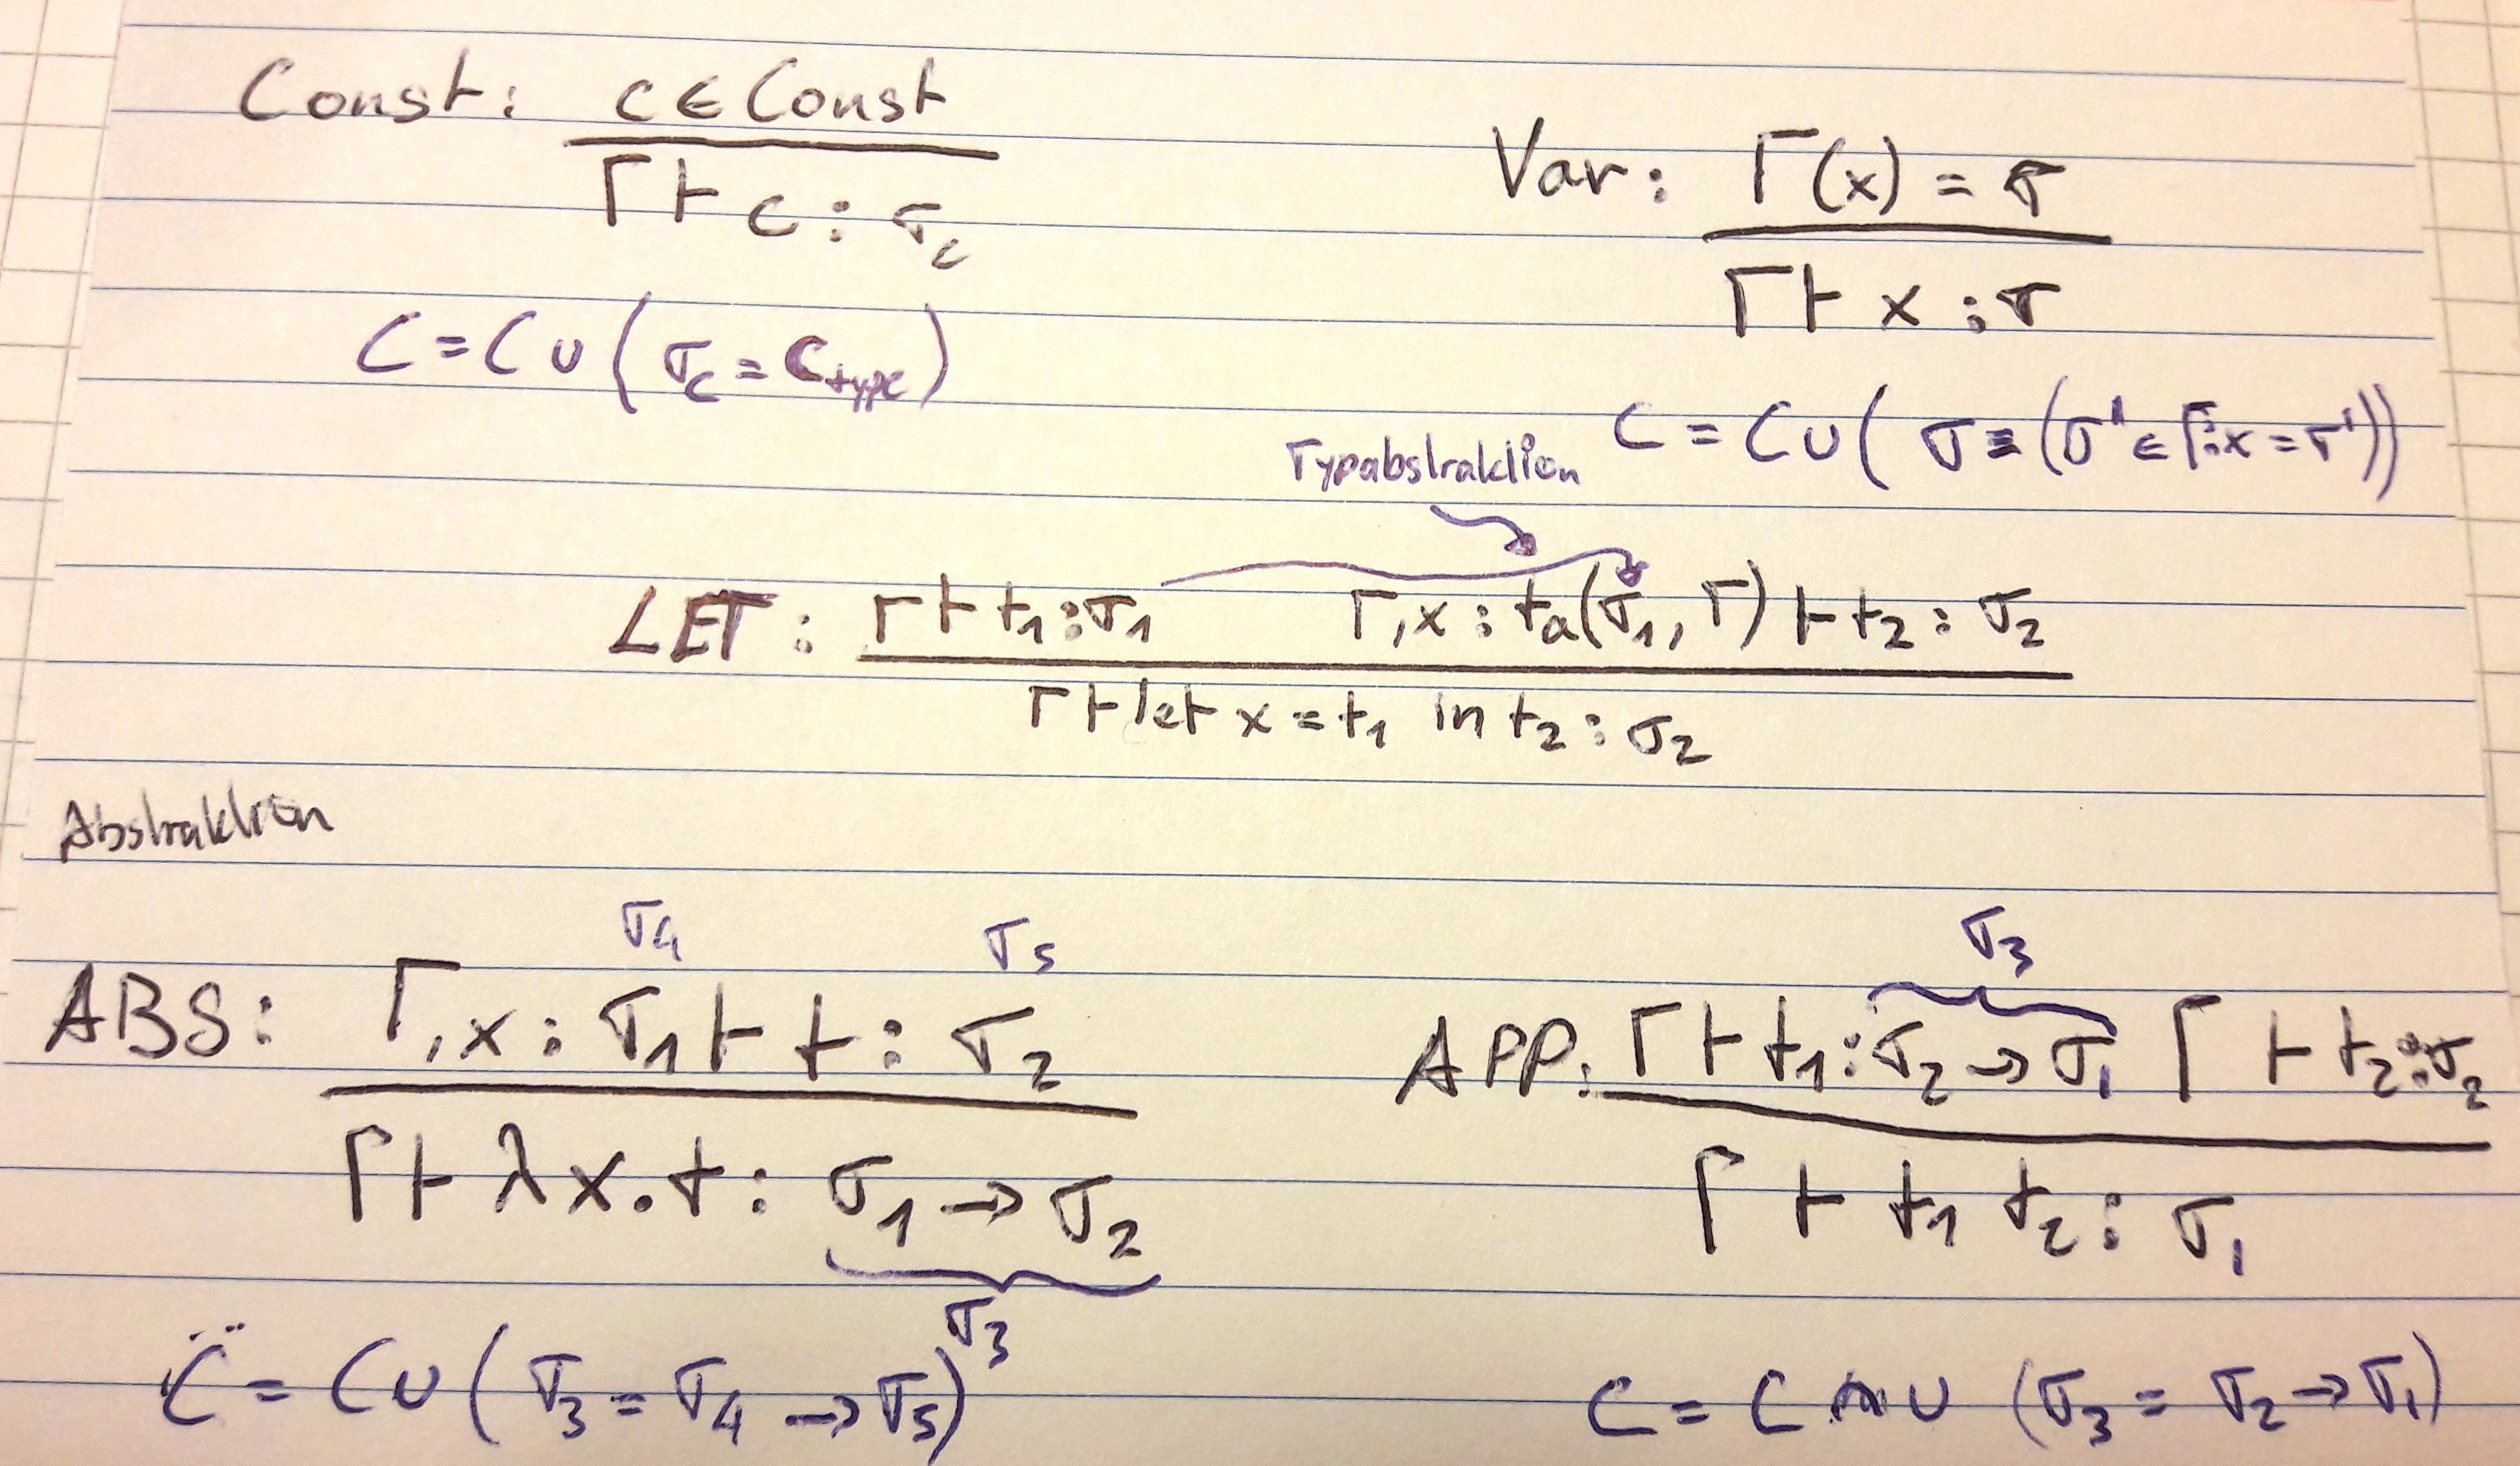 Const: c ∈ Const
Γ ⊢ c : τ_c
C = C ∪ (τ_c = c_type)
Var: Γ(x) = τ
Γ ⊢ x : τ
C = C ∪ ( τ ≡ (τ' ∈ Γ : x = τ'))
Typabstraktion
LET: Γ ⊢ t₁ : τ₁ Γ, x : ta(τ₁, Γ) ⊢ t₂ : τ₂
Γ ⊢ let x = t₁ in t₂ : τ₂
Abstraktion
τ₄ τ₅
ABS: Γ, x : τ₁ ⊢ t : τ₂
Γ ⊢ λx.t : τ₁ → τ₂
τ₃
C = C ∪ (τ₃ = τ₄ → τ₅)
τ₃
APP: Γ ⊢ t₁ : τ₂ → τ₁ Γ ⊢ t₂ : τ₂
Γ ⊢ t₁ t₂ : τ₁
C = C ∪ (τ₃ = τ₂ → τ₁)